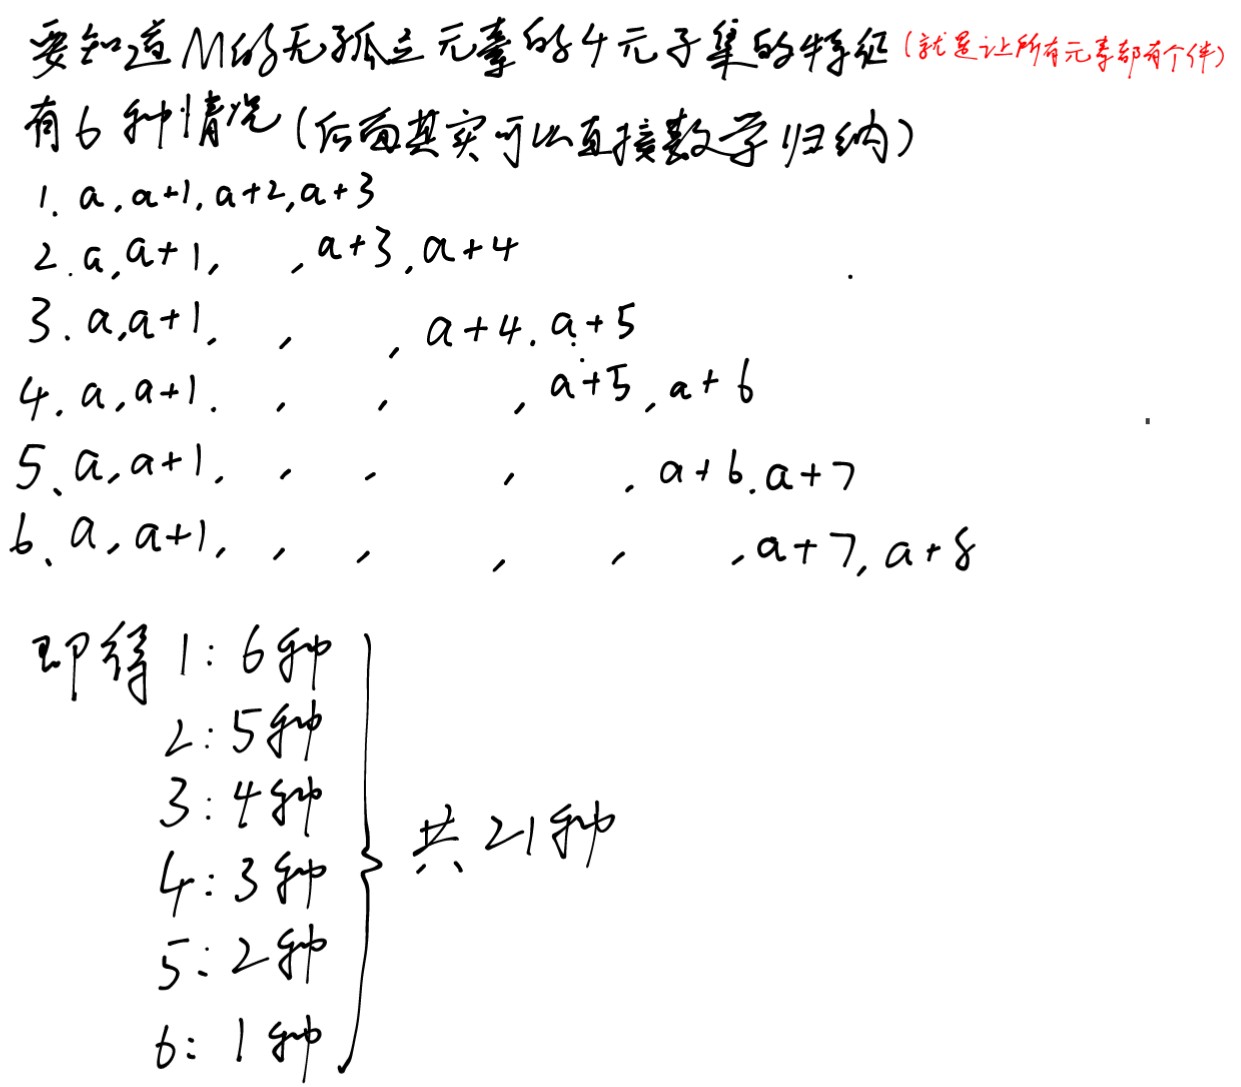 要知道M的无孤立元素的4元子集的特征(就是让所有元素都有个伴)
有6种情况(后面其实可以直接数学归纳)
1. a,a+1,a+2,a+3
2. a,a+1, ,a+3,a+4
3. a,a+1, , ,a+4.a+5
4. a,a+1. , , ,a+5,a+6
5、a,a+1, , , , ,a+6.a+7
6、a,a+1, , , , , ,a+7,a+8
即得1:6种
2:5种
3:4种
4:3种
5:2种
6:1种
共21种